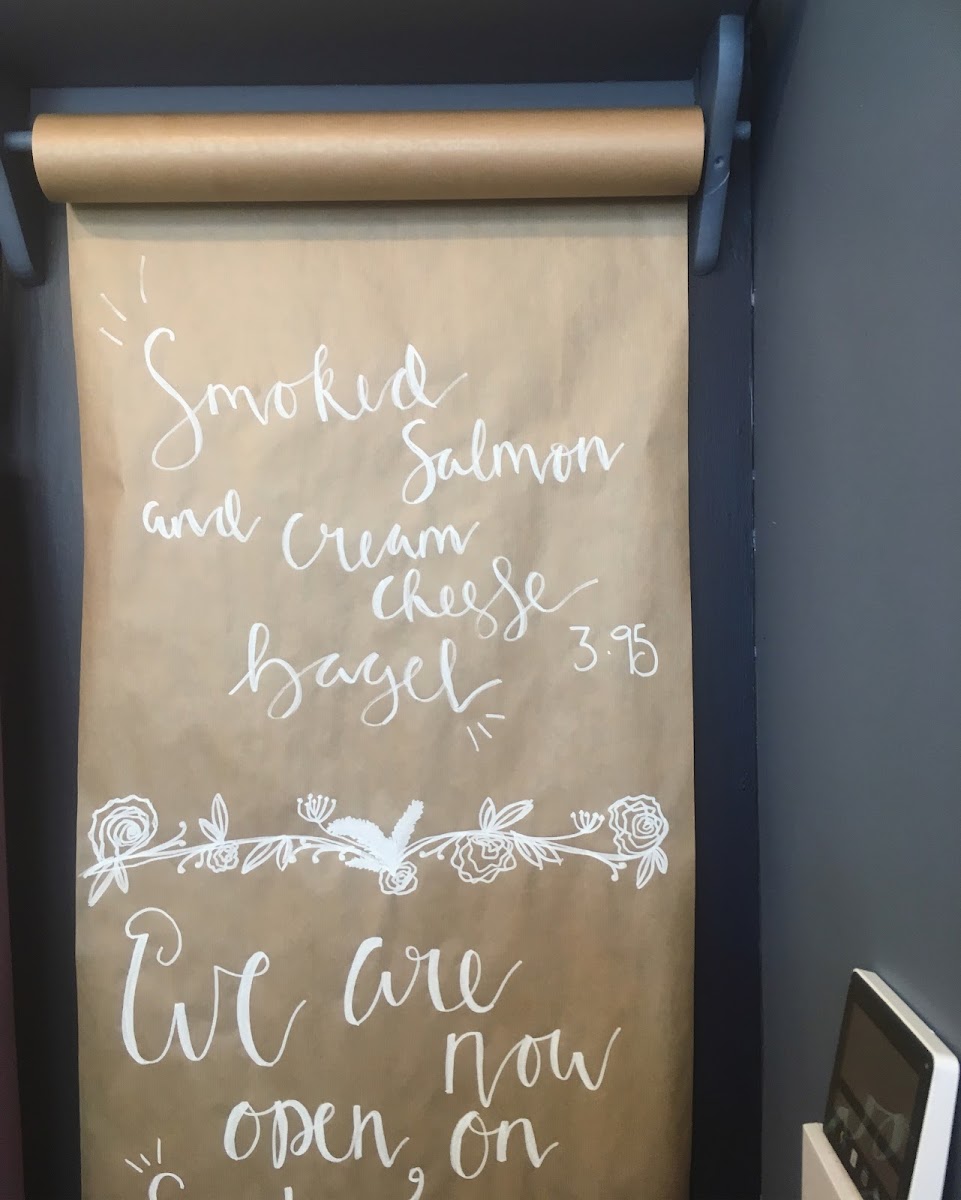 Smoked
Salmon
and cream
cheese
bagel 3.95
We are
now
open, on